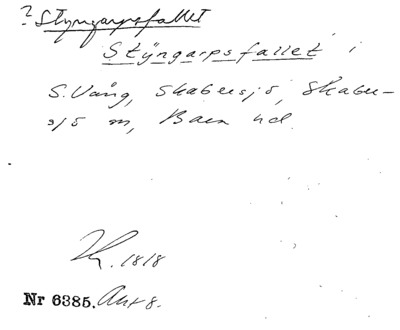 ? Styngarpsfallet
Styngarpsfallet i
S. Vång, Skabersjö, Skaber-
sjö sn, Bara hd.
1818
Nr 6385. Akt 8.